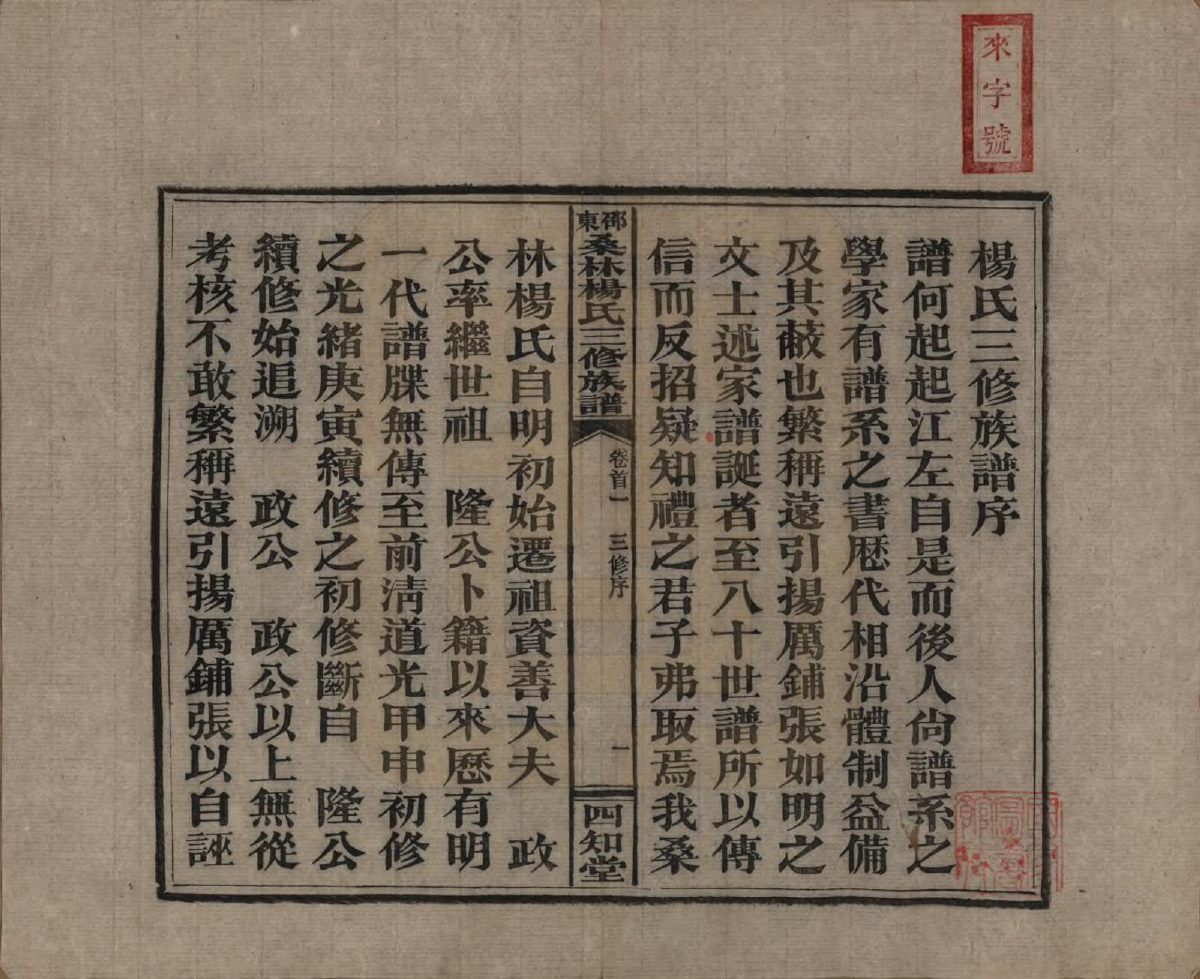 來字號
楊氏三修族譜序
譜何起起江左自是而後人尙譜系之
學家有譜系之書歷代相沿體制益備
及其蔽也繁稱遠引揚厲鋪張如明之
文士述家譜誕者至八十世譜所以傳
信而反招疑知禮之君子弗取焉我桑
邵東桑林楊氏三修族譜 卷首一 三修序 一 四知堂
林楊氏自明初始遷祖資善大夫 政
公率繼世祖 隆公卜籍以來歷有明
一代譜牒無傳至前淸道光甲申初修
之光緒庚寅續修之初修斷自 隆公
續修始追溯 政公 政公以上無從
考核不敢繁稱遠引揚厲鋪張以自誣